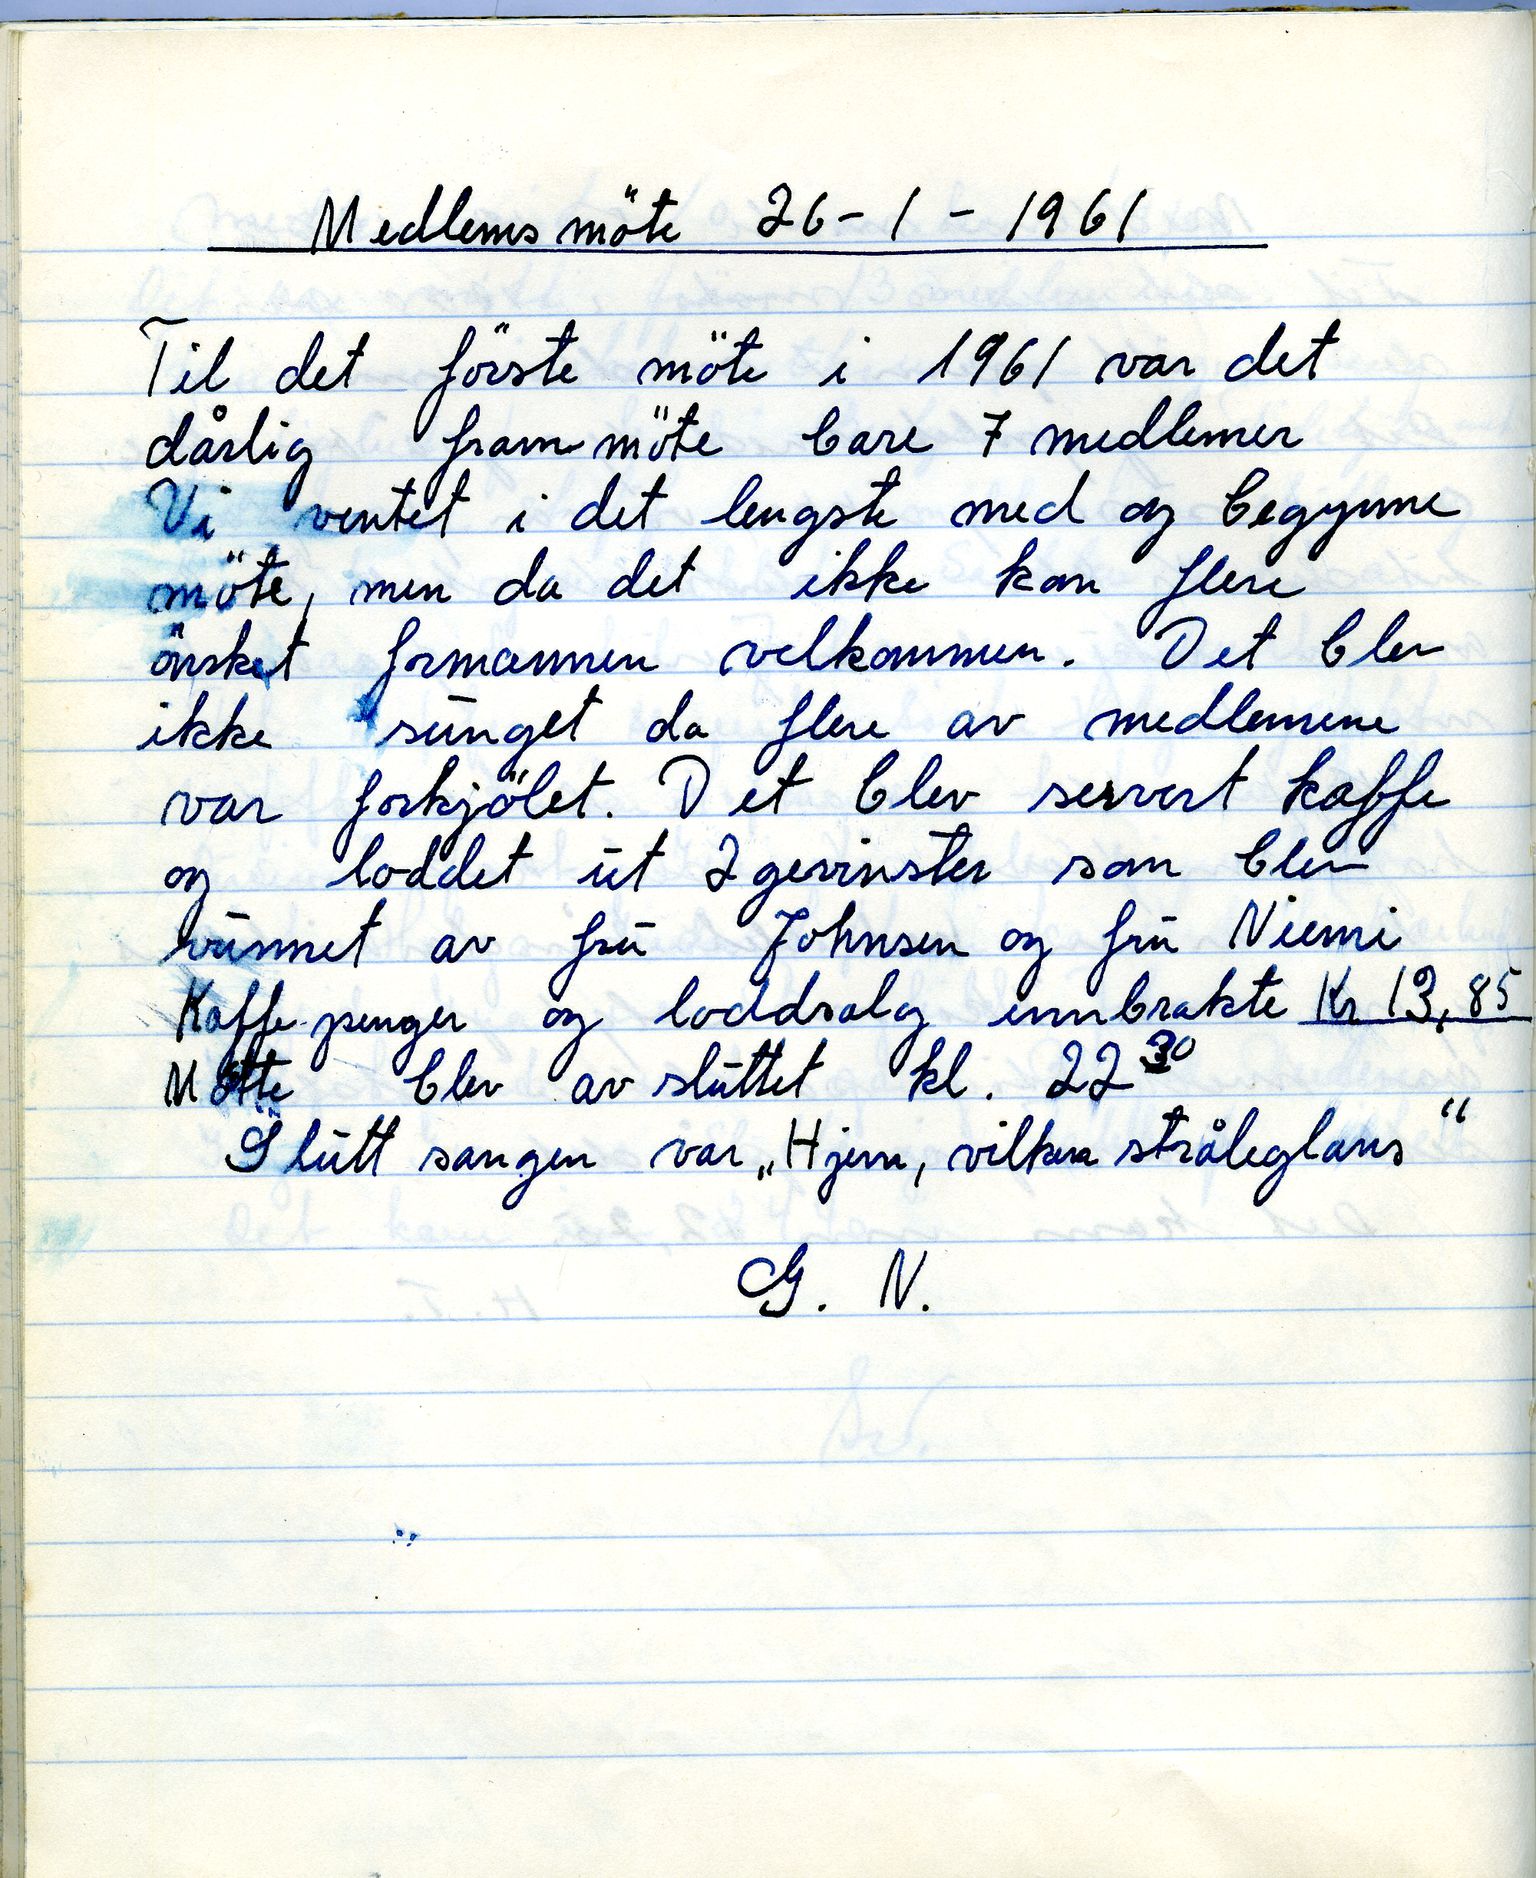 Medlemsmöte 26-1-1961
Til det förste möte i 1961 var det
dårlig frammöte bare 7 medlemer
Vi ventet i det lengste med og begynne
möte, men da det ikke kom flere
önsket formannen velkommen. Det blev
ikke sunget da flere av medlemene
var forkjölet. Det blev servert kaffe
og loddet ut 2 gevinster som blev
vunnet av fru Johnsen og fru Niemi
Kaffepenger og loddsalg innbrakte Kr 13,85
Möte blev avsluttet kl. 22 30
Sluttsangen var „Hjem, vilken stråleglans“
G. N.